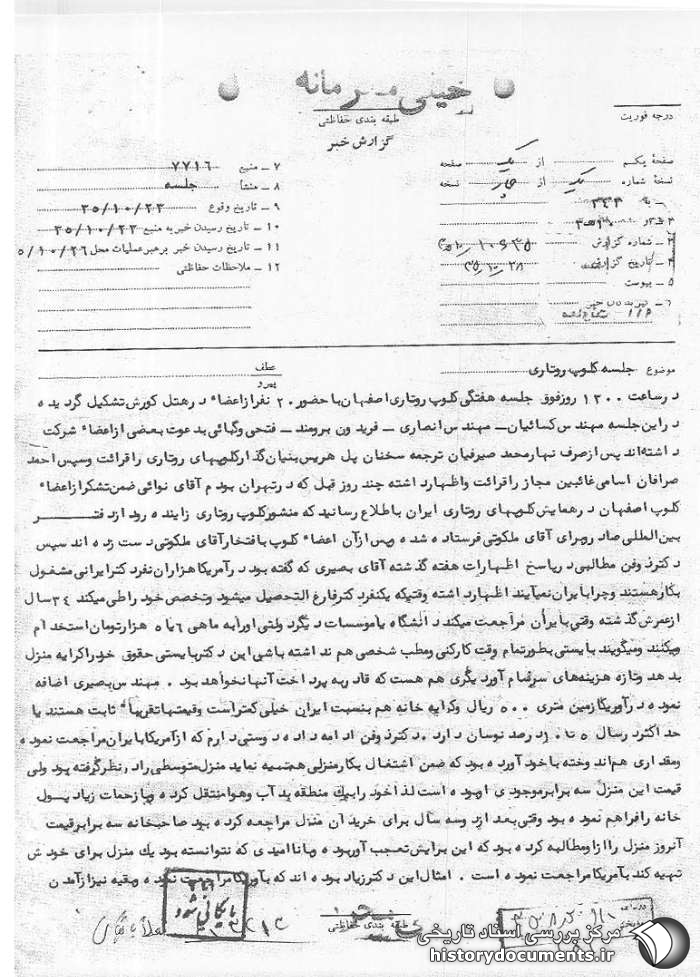 خیلی محرمانه
طبقه بندی حفاظتی
درجه فوریت
گزارش خبر
صفحه یکم از یک صفحه
نسخه شماره یک از چهار نسخه
۴ـ شماره گزارش
۴ـ تاریخ گزارش
۵ ـ پیوست
۷ ـ منبع ۷۷۱۶
۸ ـ منشأ جلسه
۹ ـ تاریخ وقوع ۳۵/۱۰/۲۲
۱۰ ـ تاریخ رسیدن خبر به منبع ۳۵/۱۰/۲۲
۱۱ ـ تاریخ رسیدن خبر برهبر عملیات محل ۵/۱۰/۲۶
۱۲ ـ ملاحظات حفاظتی
موضوع جلسه کلوپ روتاری
عطف
پیرو
در ساعت ۱۲۰۰ روز فوق جلسه هفتگی کلوپ روتاری اصفهان با حضور ۲۰ نفر از اعضاء در هتل کورش تشکیل گردیده
در این جلسه مهندس کسائیان ـ مهندس انصاری ـ فریدون برومند ـ فتحی و گهائی بدعوت بعضی از اعضاء شرکت
داشته‌اند پس از صرف نهار محمد صیرفیان ترجمه سخنان پل هریس بنیان گذار کلوپهای روتاری را قرائت و سپس احمد
صرافان اسامی غائبین مجاز را قرائت و اظهار داشته چند روز قبل که در تهران بودم آقای نوائی ضمن تشکر از اعضاء
کلوپ اصفهان در همایش کلوپهای روتاری ایران با طلاع رسانید که منشور کلوپ روتاری زاینده رود از دفتر
بین‌المللی صادر و برای آقای ملکوتی فرستاده شده و پس از آن اعضاء کلوپ با فتخار آقای ملکوتی دست زده اند سپس
دکتر ذوفن مطالبی در پاسخ اظهارات هفته گذشته آقای بصیری که گفته بود در آمریکا هزاران نفر دکتر ایرانی مشغول
بکار هستند و چرا بایران نمیآیند اظهار داشته وقتیکه یکنفر دکتر فارغ التحصیل میشود و تخصص خود را طی میکند ۳۴ سال
از عمرش گذشته وقتی بایران مراجعت میکند دانشگاه یا موسسات دیگر دولتی او را به ماهی ۶ یا ۵ هزار تومان استخدام
میکنند و میگویند بایستی بطور تمام وقت کار کنی و مطب شخصی هم نداشته باشی این دکتر بایستی حقوق خود را کرایه منزل
بدهد و تازه هزینه‌های سرسام آور دیگری هم هست که قادر به پرداخت آنها نخواهد بود . مهندس بصیری اضافه
نموده در آمریکا زمین متری ۵۰۰ ریال و کرایه خانه هم بنسبت ایران خیلی کمتر است و قیمتها تقریباً ثابت هستند یا
حداکثر در سال ۵ تا ۱۰ درصد نوسان دارد . دکتر ذوفن ادامه داده دوستی دارم که از آمریکا بایران مراجعت نموده
و مقداری هم اندوخته با خود آورده بود که ضمن اشتغال بکار منزلی هم تهیه نماید منزل متوسطی را در نظر گرفته بود ولی
قیمت این منزل سه برابر موجودی او بوده است لذا خود را بیک منطقه بد آب و هوا منتقل کرده و با زحمات زیاد پول
خانه را فراهم نموده بود وقتی بعد از دو سه سال برای خرید آن منزل مراجعه کرده بود صاحبخانه سه برابر قیمت
آنروز منزل را از او مطالبه کرده بود که این برایش تعجب آور بوده و با نا امیدی که نتوانسته بود یك منزل برای خودش
تهیه کند بآمریکا مراجعت نموده است . امثال این دکتر زیاد بوده اند که بآمریکا مراجعت نموده و بقیه نیز از آمدن
بایگانی شود
طبقه بندی حفاظتی
مرکز بررسی اسناد تاریخی
historydocuments.ir